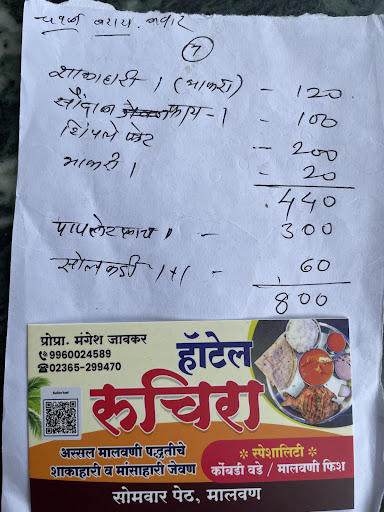 7
शाकाहारी 1 (भाकरी) - 120
सौंदाळे फ्राय - 1 - 100
शिंपले प्लेट - 200
भाकरी 1 - 20
440
पापलेट फ्राय 1 - 300
सोलकडी 1+1 - 60
800
प्रोप्रा. मंगेश जावकर
9960024589
02365-299470
हॉटेल
रुचिरा
अस्सल मालवणी पद्धतीचे
शाकाहारी व मांसाहारी जेवण
स्पेशालिटी
कोंबडी वडे / मालवणी फिश
सोमवार पेठ, मालवण